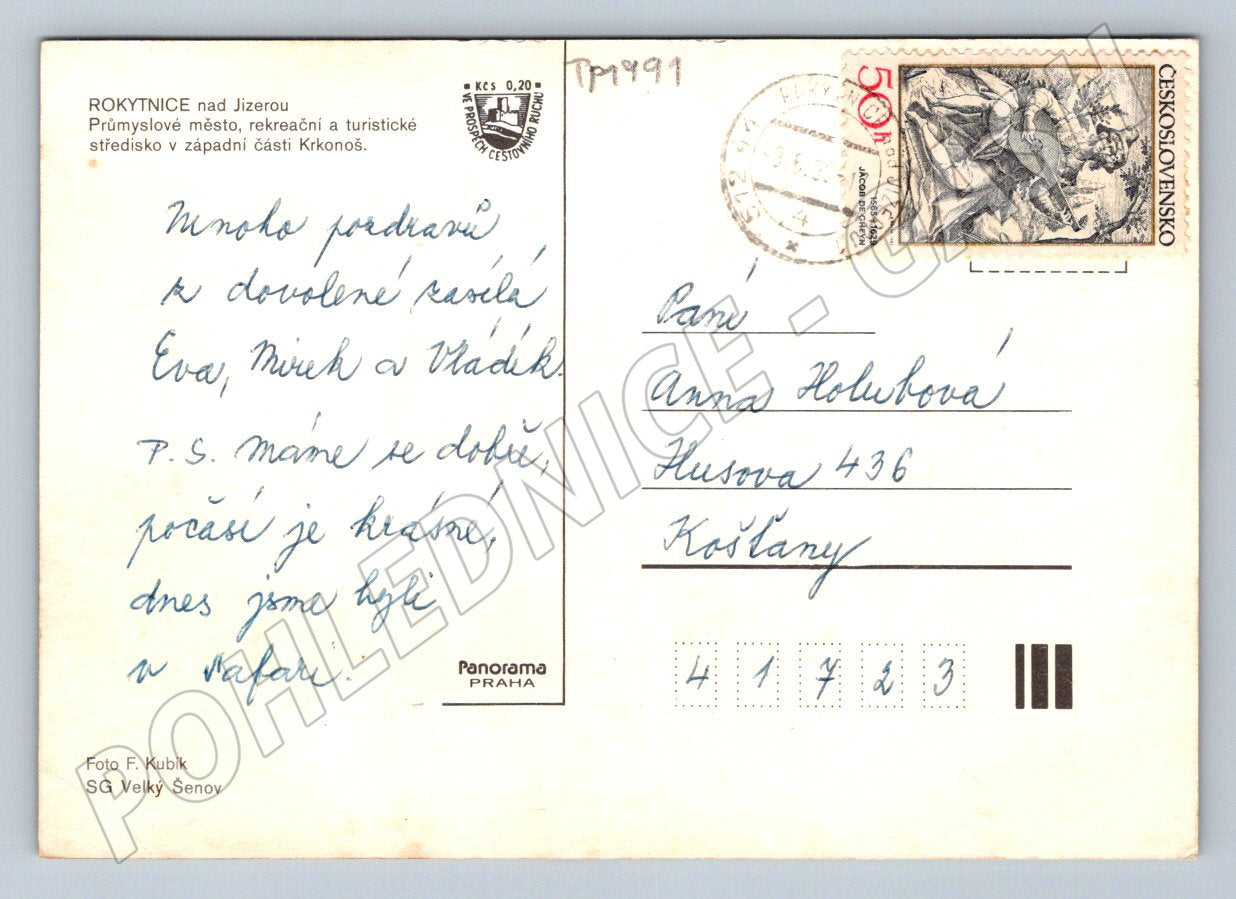 ROKYTNICE nad Jizerou
Průmyslové město, rekreační a turistické
středisko v západní části Krkonoš.
Kčs 0,20
VE PROSPĚCH CESTOVNÍHO RUCHU
Mnoho pozdravů
z dovolené zasílá
Eva, Mirek a Vládík.
P. S. Máme se dobře,
počásí je krásné,
dnes jsme byli
v Safari.
Panorama
PRAHA
Foto F. Kubík
SG Velký Šenov
Tp1491
512 44
ČESKOSLOVENSKO
50h
JACOB DE GHEYN
1565-1629
Paní
Anna Holubová
Husova 436
Košťany
4 1 7 2 3
POHLEDNICE -